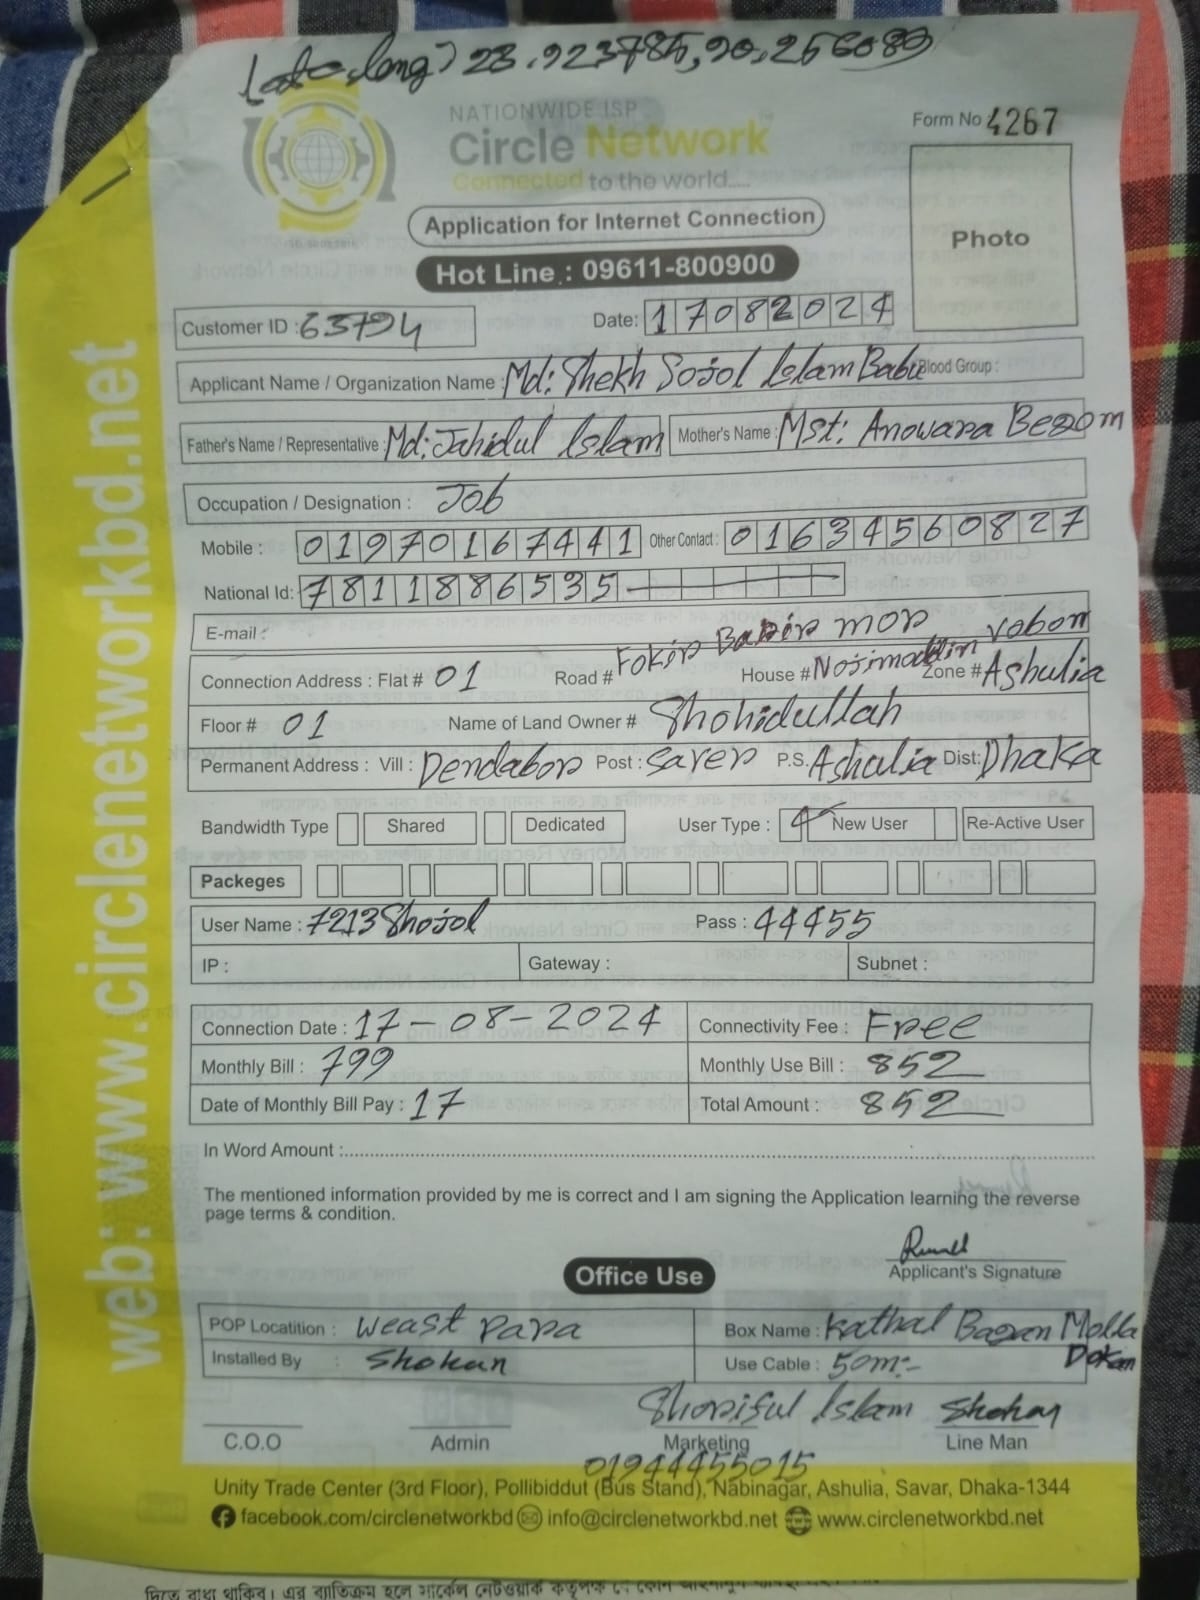 Lat-long) 23.923785,90.256083
NATIONWIDE ISP
Circle Network
Connected to the world.....
Form No 4267
Photo
Application for Internet Connection
Hot Line : 09611-800900
Customer ID : 63794 Date: 17082024
Applicant Name / Organization Name : Md: Shekh Sojol Islam Babu Blood Group :
Father's Name / Representative : Md: Jahidul Islam Mother's Name : Mst: Anowara Begom
Occupation / Designation : Job
Mobile : 01970167441 Other Contact : 01634560827
National Id: 7811886535
E-mail :
Connection Address : Flat # 01 Road # Fokir Barir mor House # Nojimoddin Vobon Zone # Ashulia
Floor # 01 Name of Land Owner # Shohidullah
Permanent Address : Vill : Dendabor Post : Saver P.S. Ashulia Dist: Dhaka
Bandwidth Type Shared Dedicated User Type : New User Re-Active User
Packeges
User Name : 7213Shojol Pass : 44455
IP : Gateway : Subnet :
Connection Date : 17-08-2024 Connectivity Fee : Free
Monthly Bill : 799 Monthly Use Bill : 852
Date of Monthly Bill Pay : 17 Total Amount : 852
In Word Amount :
The mentioned information provided by me is correct and I am signing the Application learning the reverse
page terms & condition.
Applicant's Signature
Office Use
POP Locatition : Weast para Box Name : Kathal Bagan Molla Dokan
Installed By : Shohan Use Cable : 50m:-
Shoriful Islam Shohan
C.O.O Admin Marketing Line Man
01944455015
Unity Trade Center (3rd Floor), Pollibiddut (Bus Stand), Nabinagar, Ashulia, Savar, Dhaka-1344
facebook.com/circlenetworkbd info@circlenetworkbd.net www.circlenetworkbd.net
web: www.circlenetworkbd.net